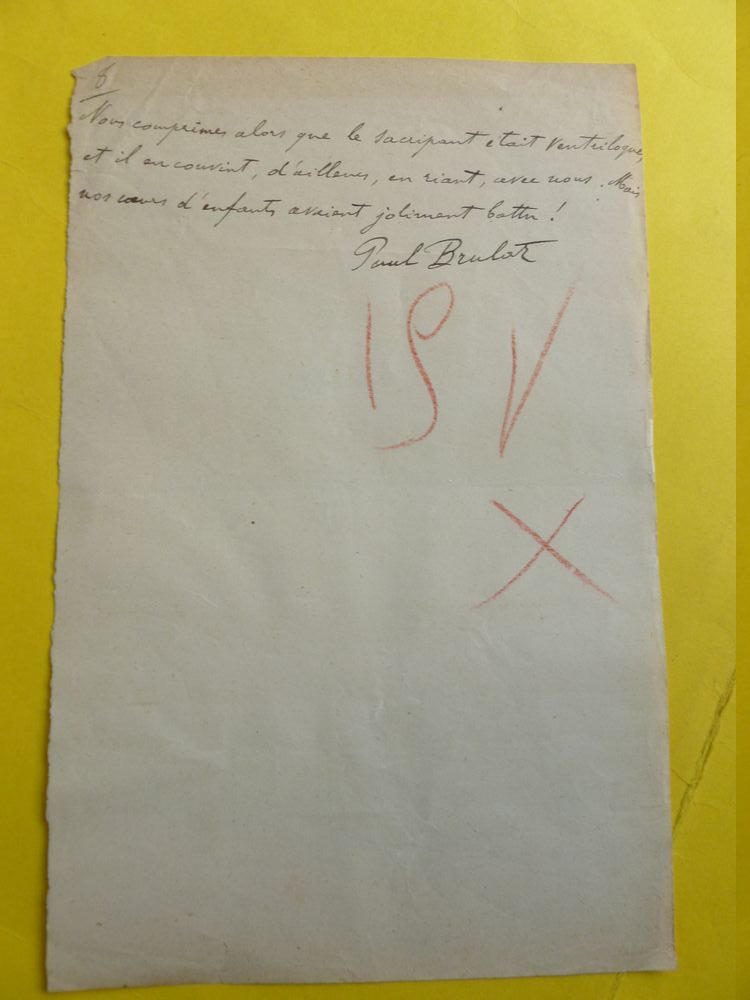 8
Nous comprîmes alors que le sacripant était ventriloque,
et il en convint, d'ailleurs, en riant, avec nous. Mais
nos cœurs d'enfants avaient joliment battu !
Paul Brulat